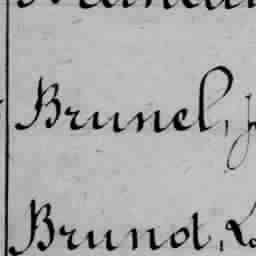 Brunel, J
Brunot, L